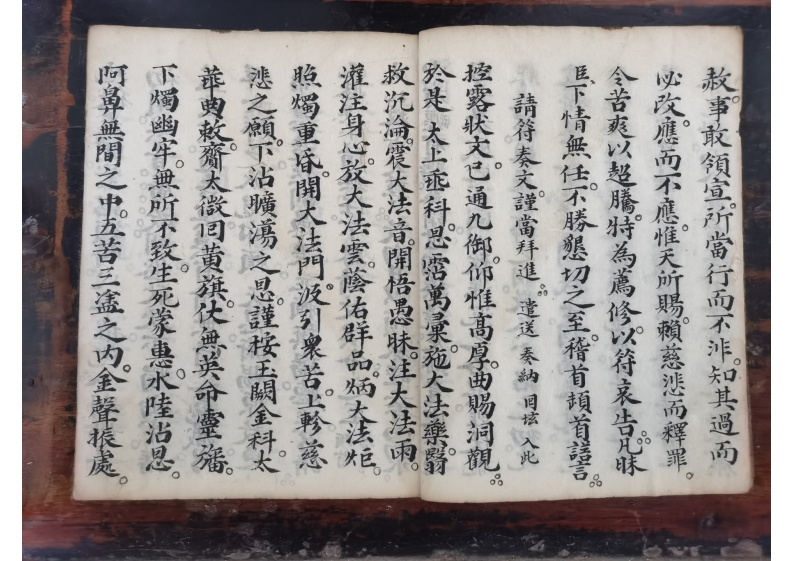 赦事敢領宣所當行而不非知其過而
必改應而不應惟天所賜賴慈悲而釋罪
令苦爽以超騰特為薦修以符哀告凡昧
臣下情無任不勝懇切之至稽首頓首謹言
請符奏文謹當拜進 遣送 奏納 回垓 入此
控露狀文已通九御仰惟高厚曲賜洞觀
於是 太上垂科恩霑萬彙施大法藥翳
救沉淪震大法音開悟愚昧注大法雨
灌注身心放大法雲蔭佑群品炳大法炬
照燭重昏開大法門汲引衆苦上軫慈
悲之願下沾曠蕩之恩謹按玉闕金科太
華典敕齎太微回黄旗伏無英命靈旛
下燭幽牢無所不致生死蒙惠水陸沾恩
阿鼻無間之中五苦三塗之内金聲振處